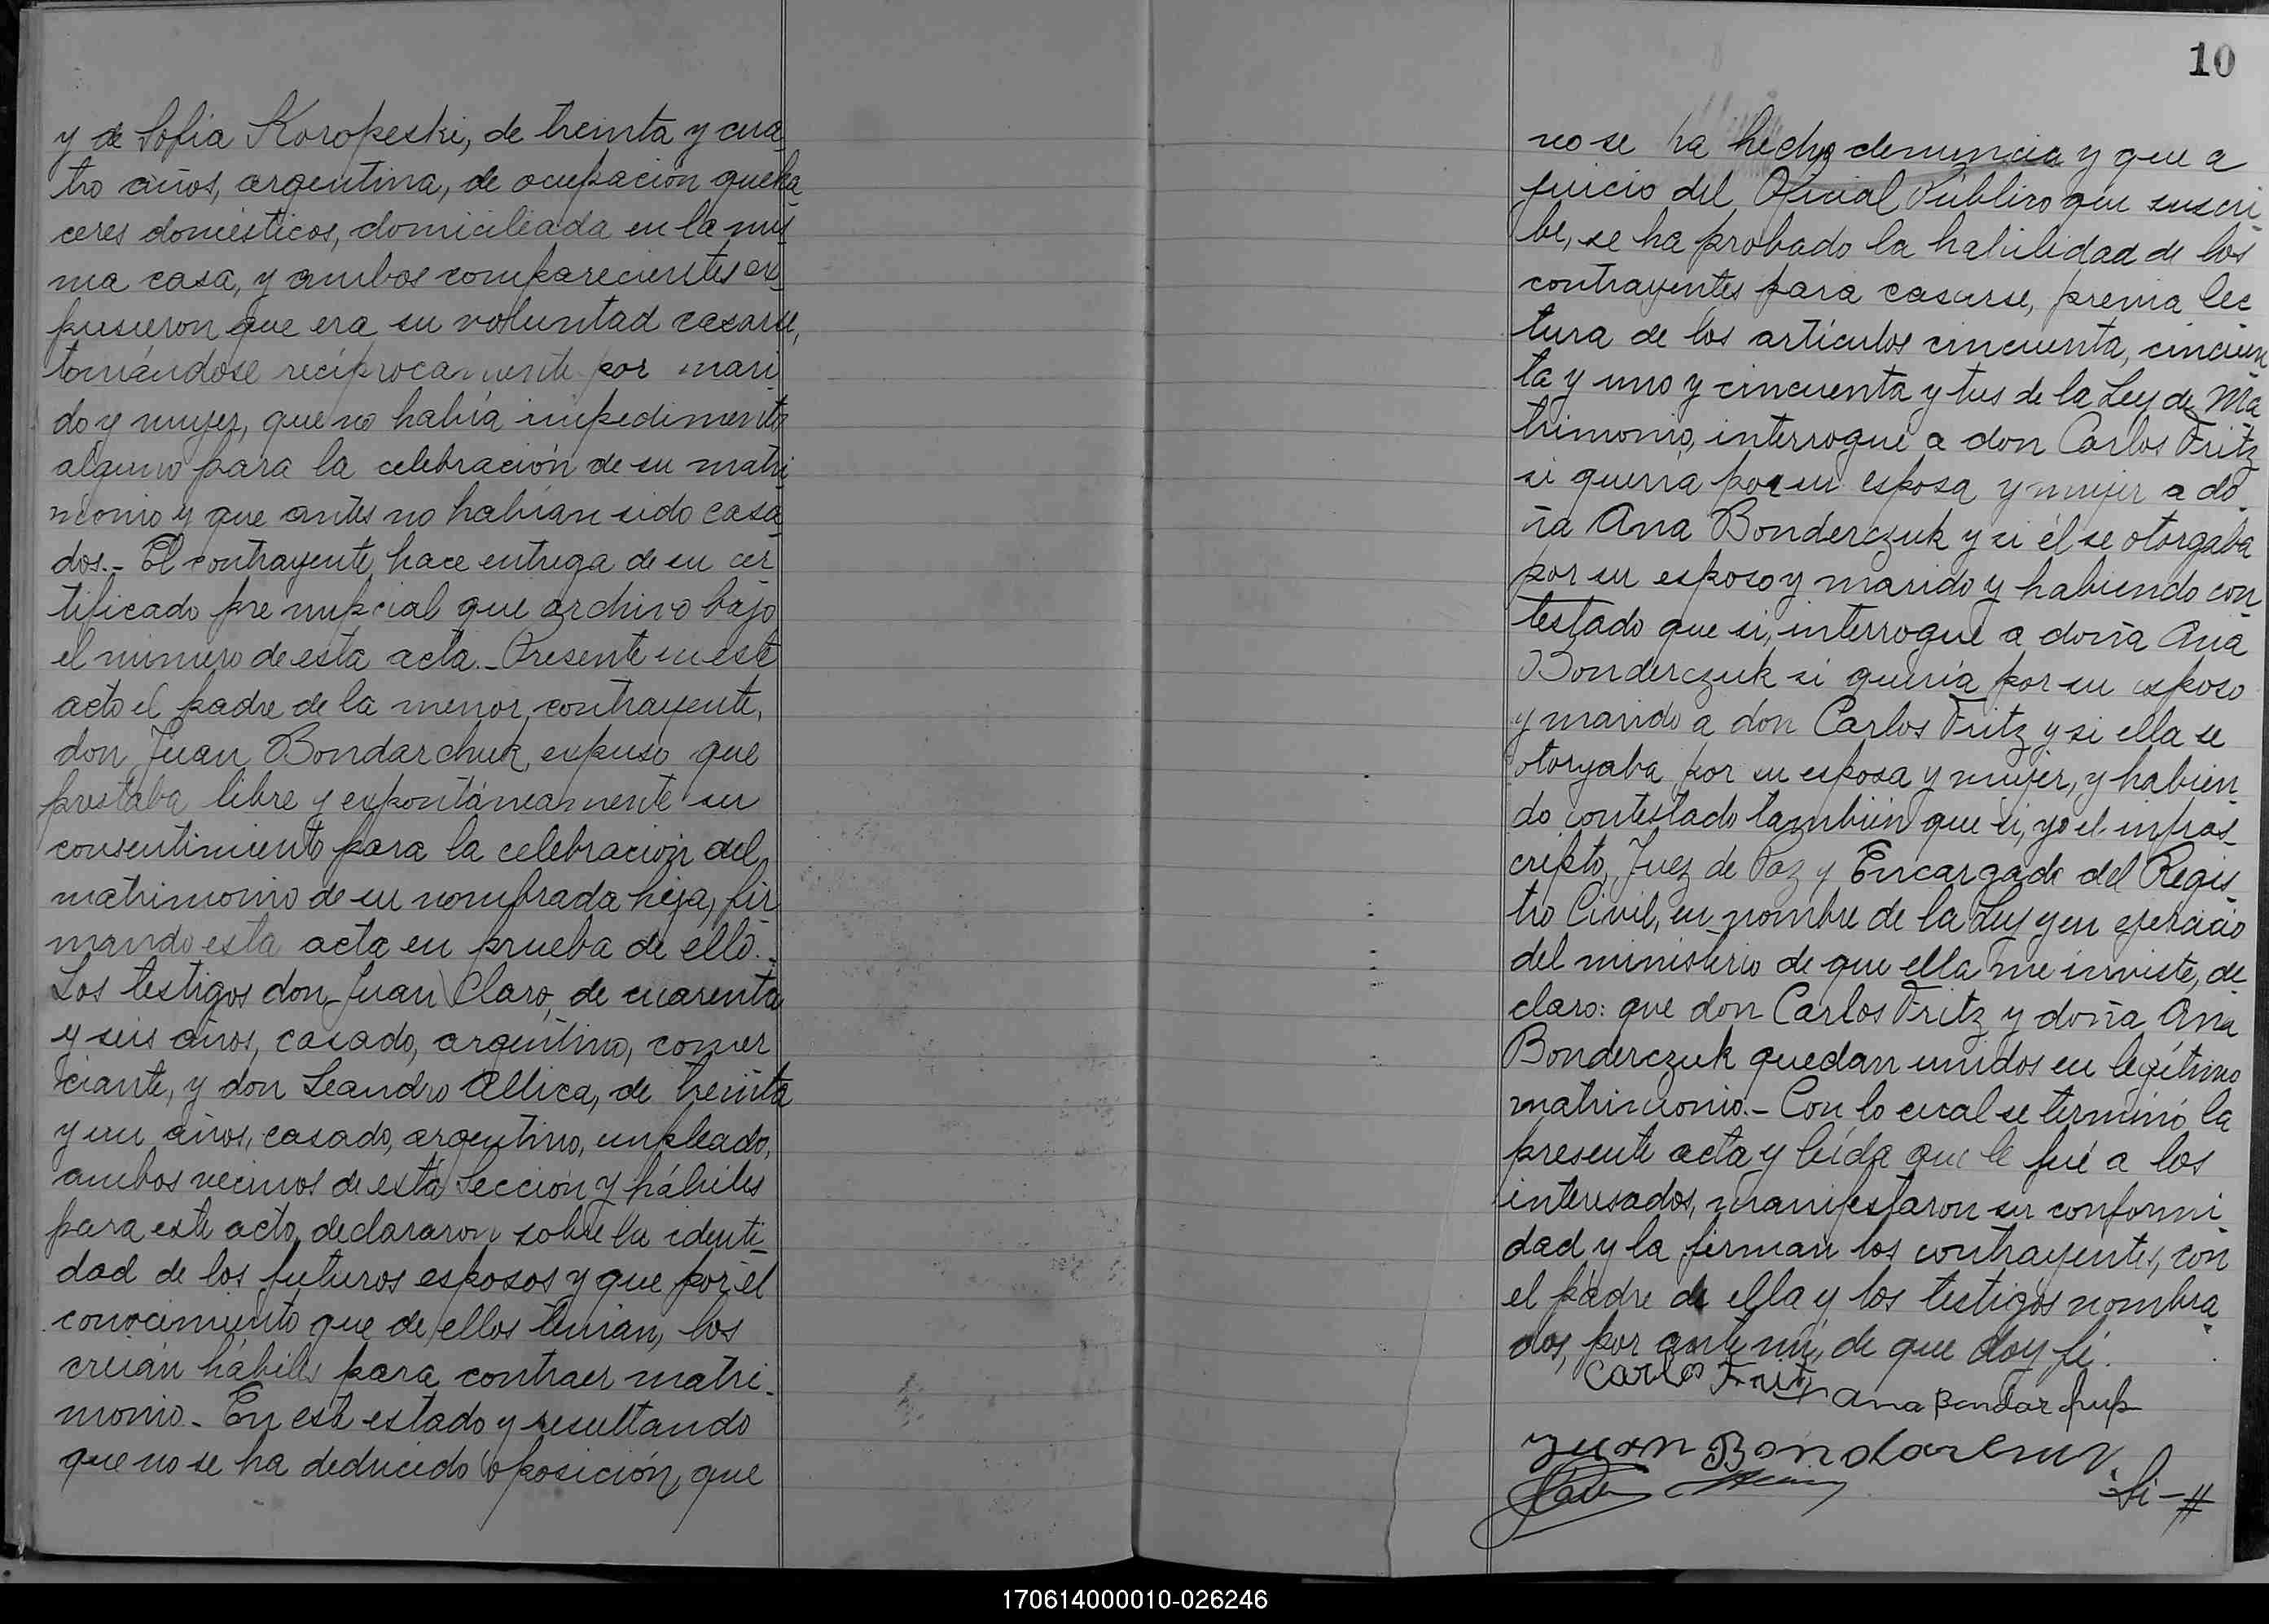 y de Sofia Koropeski, de treinta y cua
tro años, argentina, de ocupación queha
ceres domésticos, domiciliada en la mis
ma casa, y ambos comparecientes ex
pusieron que era su voluntad casarse,
tomándose recíprocamente por mari
do y mujer, que no había impedimento
alguno para la celebración de su matri
monio y que antes no habían sido casa
dos.- El contrayente hace entrega de su cer
tificado pre nupcial que archivo bajo
el número de esta acta.- Presente en este
acto el padre de la menor contrayente,
don Juan Bondarchuk, expuso que
prestaba libre y expontáneamente su
consentimiento para la celebración del
matrimonio de su nombrada hija, fir
mando esta acta en prueba de ello.-
Los testigos don Juan Claro, de cuarenta
y seis años, casado, argentino, comer
ciante, y don Leandro Allica, de treinta
y un años, casado, argentino, empleado,
ambos vecinos de esta Sección y hábiles
para este acto, declararon sobre la identi-
dad de los futuros esposos y que por el
conocimiento que de ellos tenían, los
creían hábiles para contraer matri-
monio.- En este estado y resultando
que no se ha deducido oposición, que
10
no se ha hecho denuncia y que a
juicio del Oficial Público que suscri
be, se ha probado la habilidad de los
contrayentes para casarse, previa lec
tura de los artículos cincuenta, cincuen
ta y uno y cincuenta y tres de la Ley de Ma
trimonio, interrogué a don Carlos Fritz
si quería por su esposa y mujer a do-
ña Ana Bonderczuk y si él se otorgaba
por su esposo y marido y habiendo con
testado que si, interrogué a doña Ana
Bonderczuk si quería por su esposo
y marido a don Carlos Fritz y si ella se
otorgaba por su esposa y mujer, y habien
do contestado también que si, yo el infras-
cripto, Juez de Paz y Encargado del Regis
tro Civil, en nombre de la Ley y en ejercicio
del ministerio de que ella me inviste, de
claro: que don Carlos Fritz y doña Ana
Bonderczuk quedan unidos en legítimo
matrimonio.- Con lo cual se terminó la
presente acta y leída que le fué a los
interesados, manifestaron su conformi
dad y la firman los contrayentes, con
el padre de ella y los testigos nombra
dos, por ante mí, de que doy fé.
Carlos Fritz Ana Bondar
Juan Bondarchuk
170614000010-026246